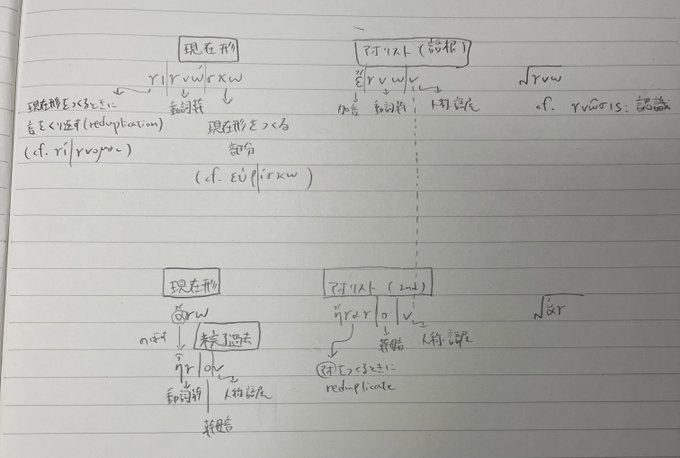 現在形
γι|γνώ|σκω
現在形をつくるときに
音をくり返す(reduplication)
(cf. γί|γνομαι)
動詞幹
現在形をつくる
部分
(cf. εὑρ|ίσκω)
アオリスト(語根)
ἔ|γνω|ν
加音 動詞幹 人称語尾
√γνω
cf. γνῶσις: 認識
現在形
ἄγω
のばす
未完了過去
ἦγ|ο|ν
動詞幹 人称語尾
幹母音
アオリスト (2nd)
ἤγαγ|ο|ν
幹母音 人称語尾
アオをつくるときに
reduplicate
√ἀγ